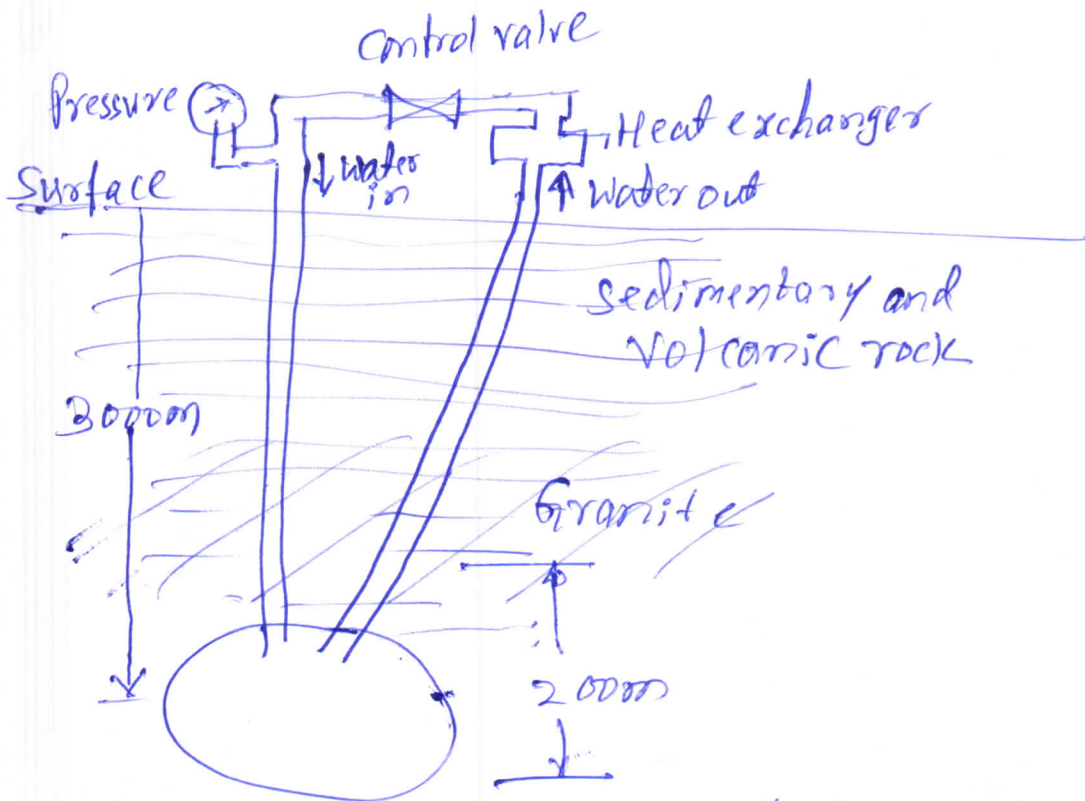 Control valve
Pressure
Heat exchanger
Surface
water
in
Water out
Sedimentary and
Volcanic rock
3000m
Granite
200m